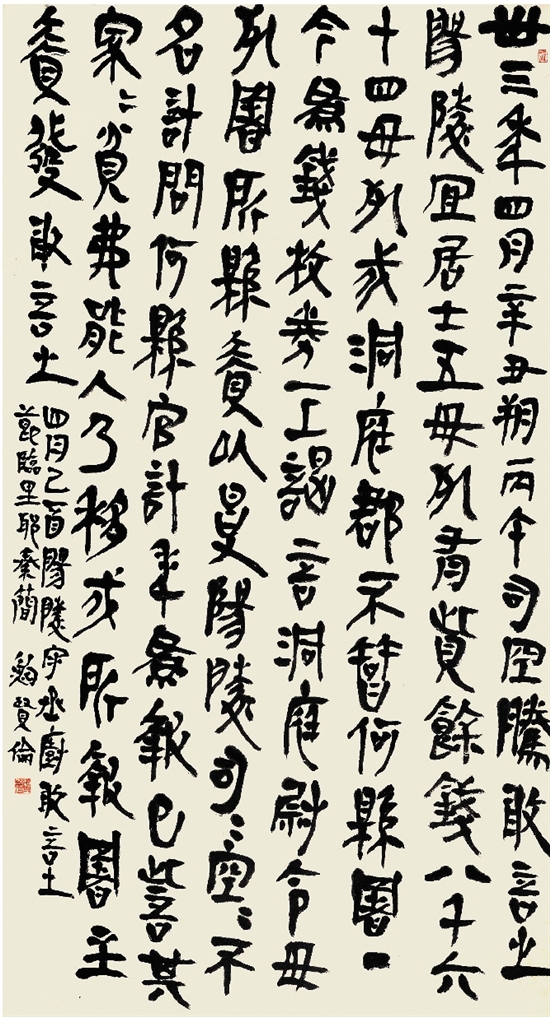 卅三年四月辛丑朔丙午司空騰敢言之
陽陵宜居士五毋死有貲餘錢八千六
十四毋死戍洞庭郡不智何縣署一
今為錢校券一上謁言洞庭尉令毋
死署所縣責以受陽陵司〻空〻不
名計問何縣官計年為報已訾其
家〻貧弗能入乃移戍所報署主
責發敢言之
四月己酉陽陵守丞廚敢言之
節臨里耶秦簡 賢倫